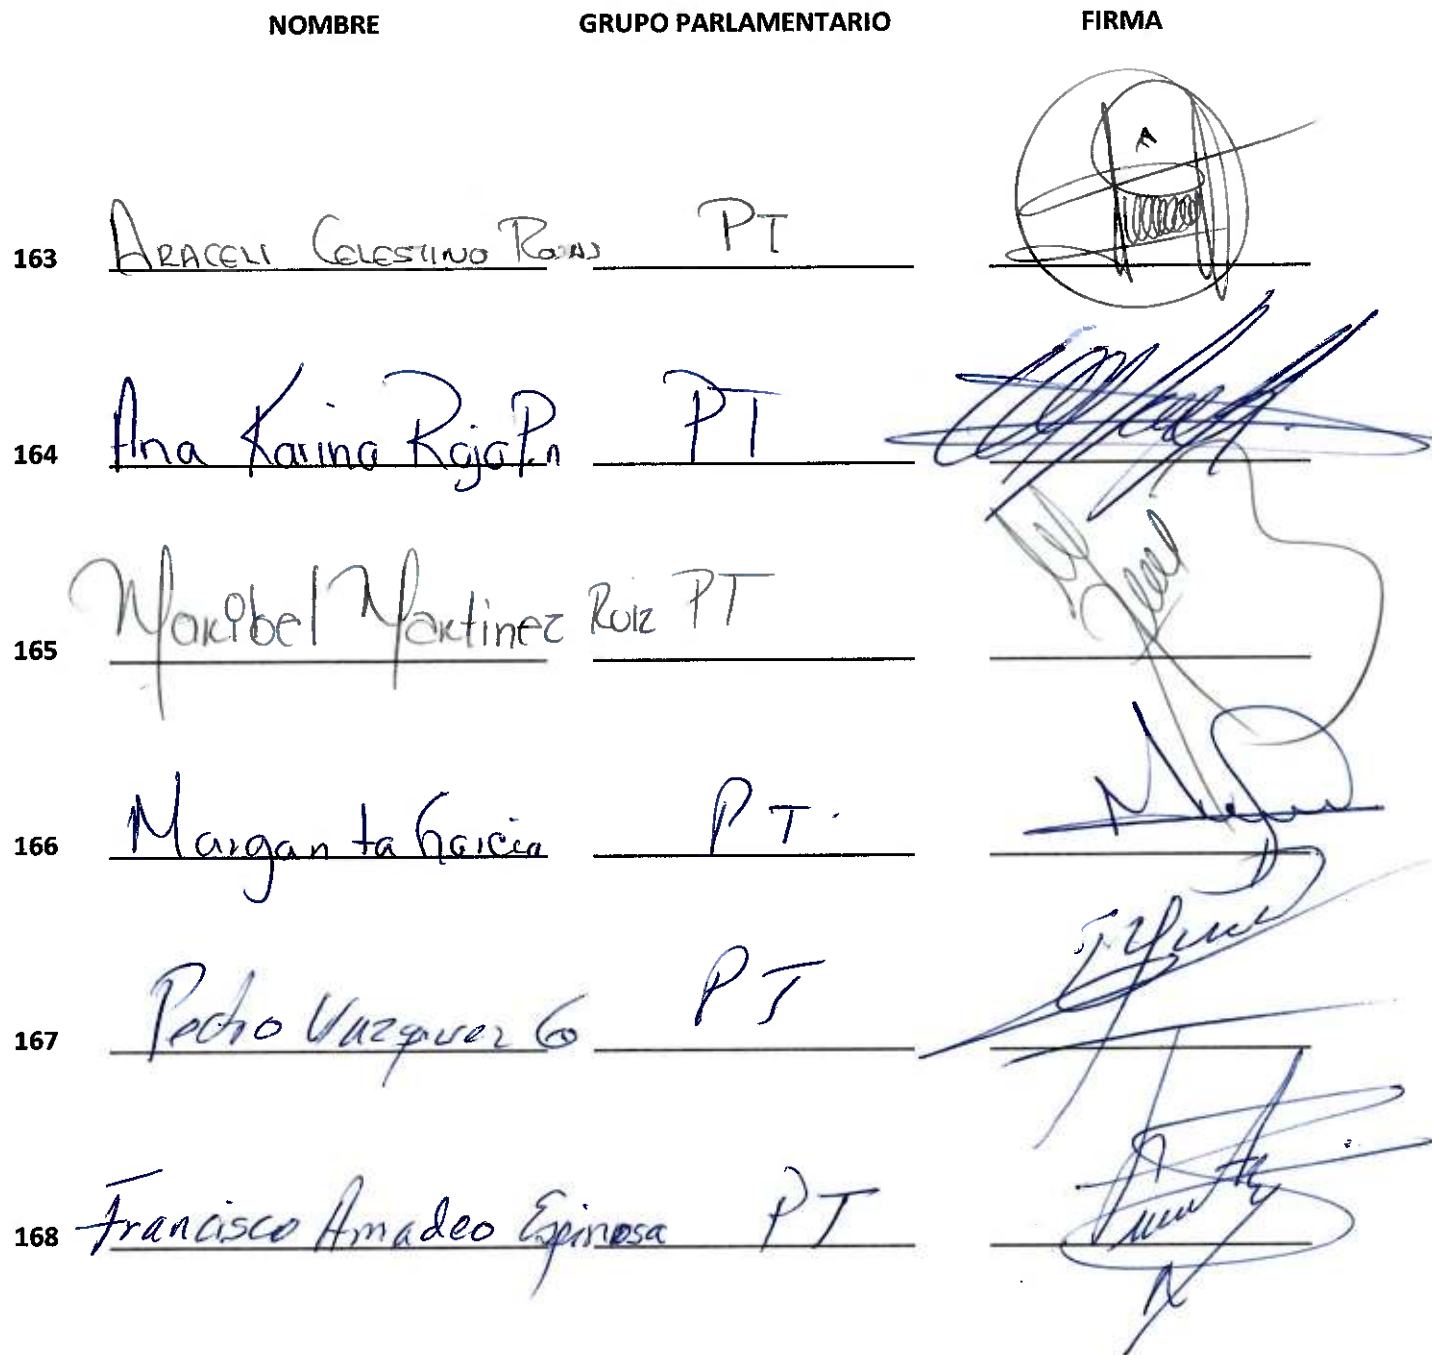 NOMBRE GRUPO PARLAMENTARIO FIRMA
163 ARACELI CELESTINO ROSAS PT
164 Ana Karina Rojo Pin PT
165 Maribel Martinez Ruiz PT
166 Margarita Garcia PT.
167 Pedro Vazquez G PT
168 Francisco Amadeo Espinosa PT